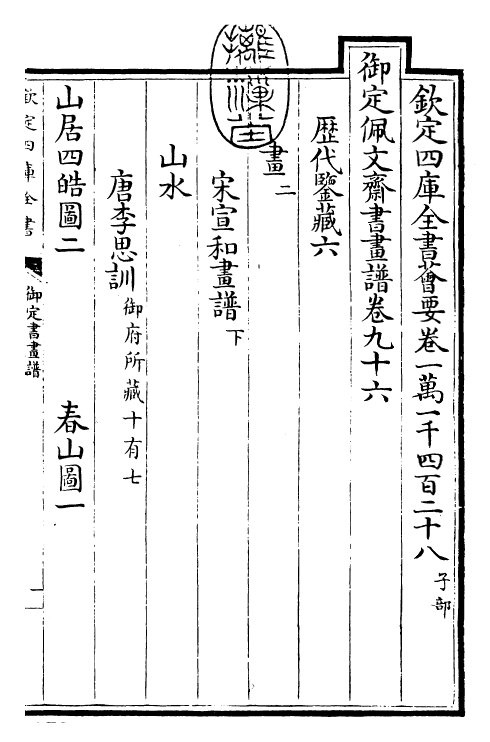 欽定四庫全書薈要卷一萬一千四百二十八 子部
御定佩文齋書畫譜卷九十六
歴代鑒藏六
畫二
宋宣和畫譜下
山水
唐李思訓御府所藏十有七
山居四皓圖二 春山圖一
欽定四庫全書 御定書畫譜